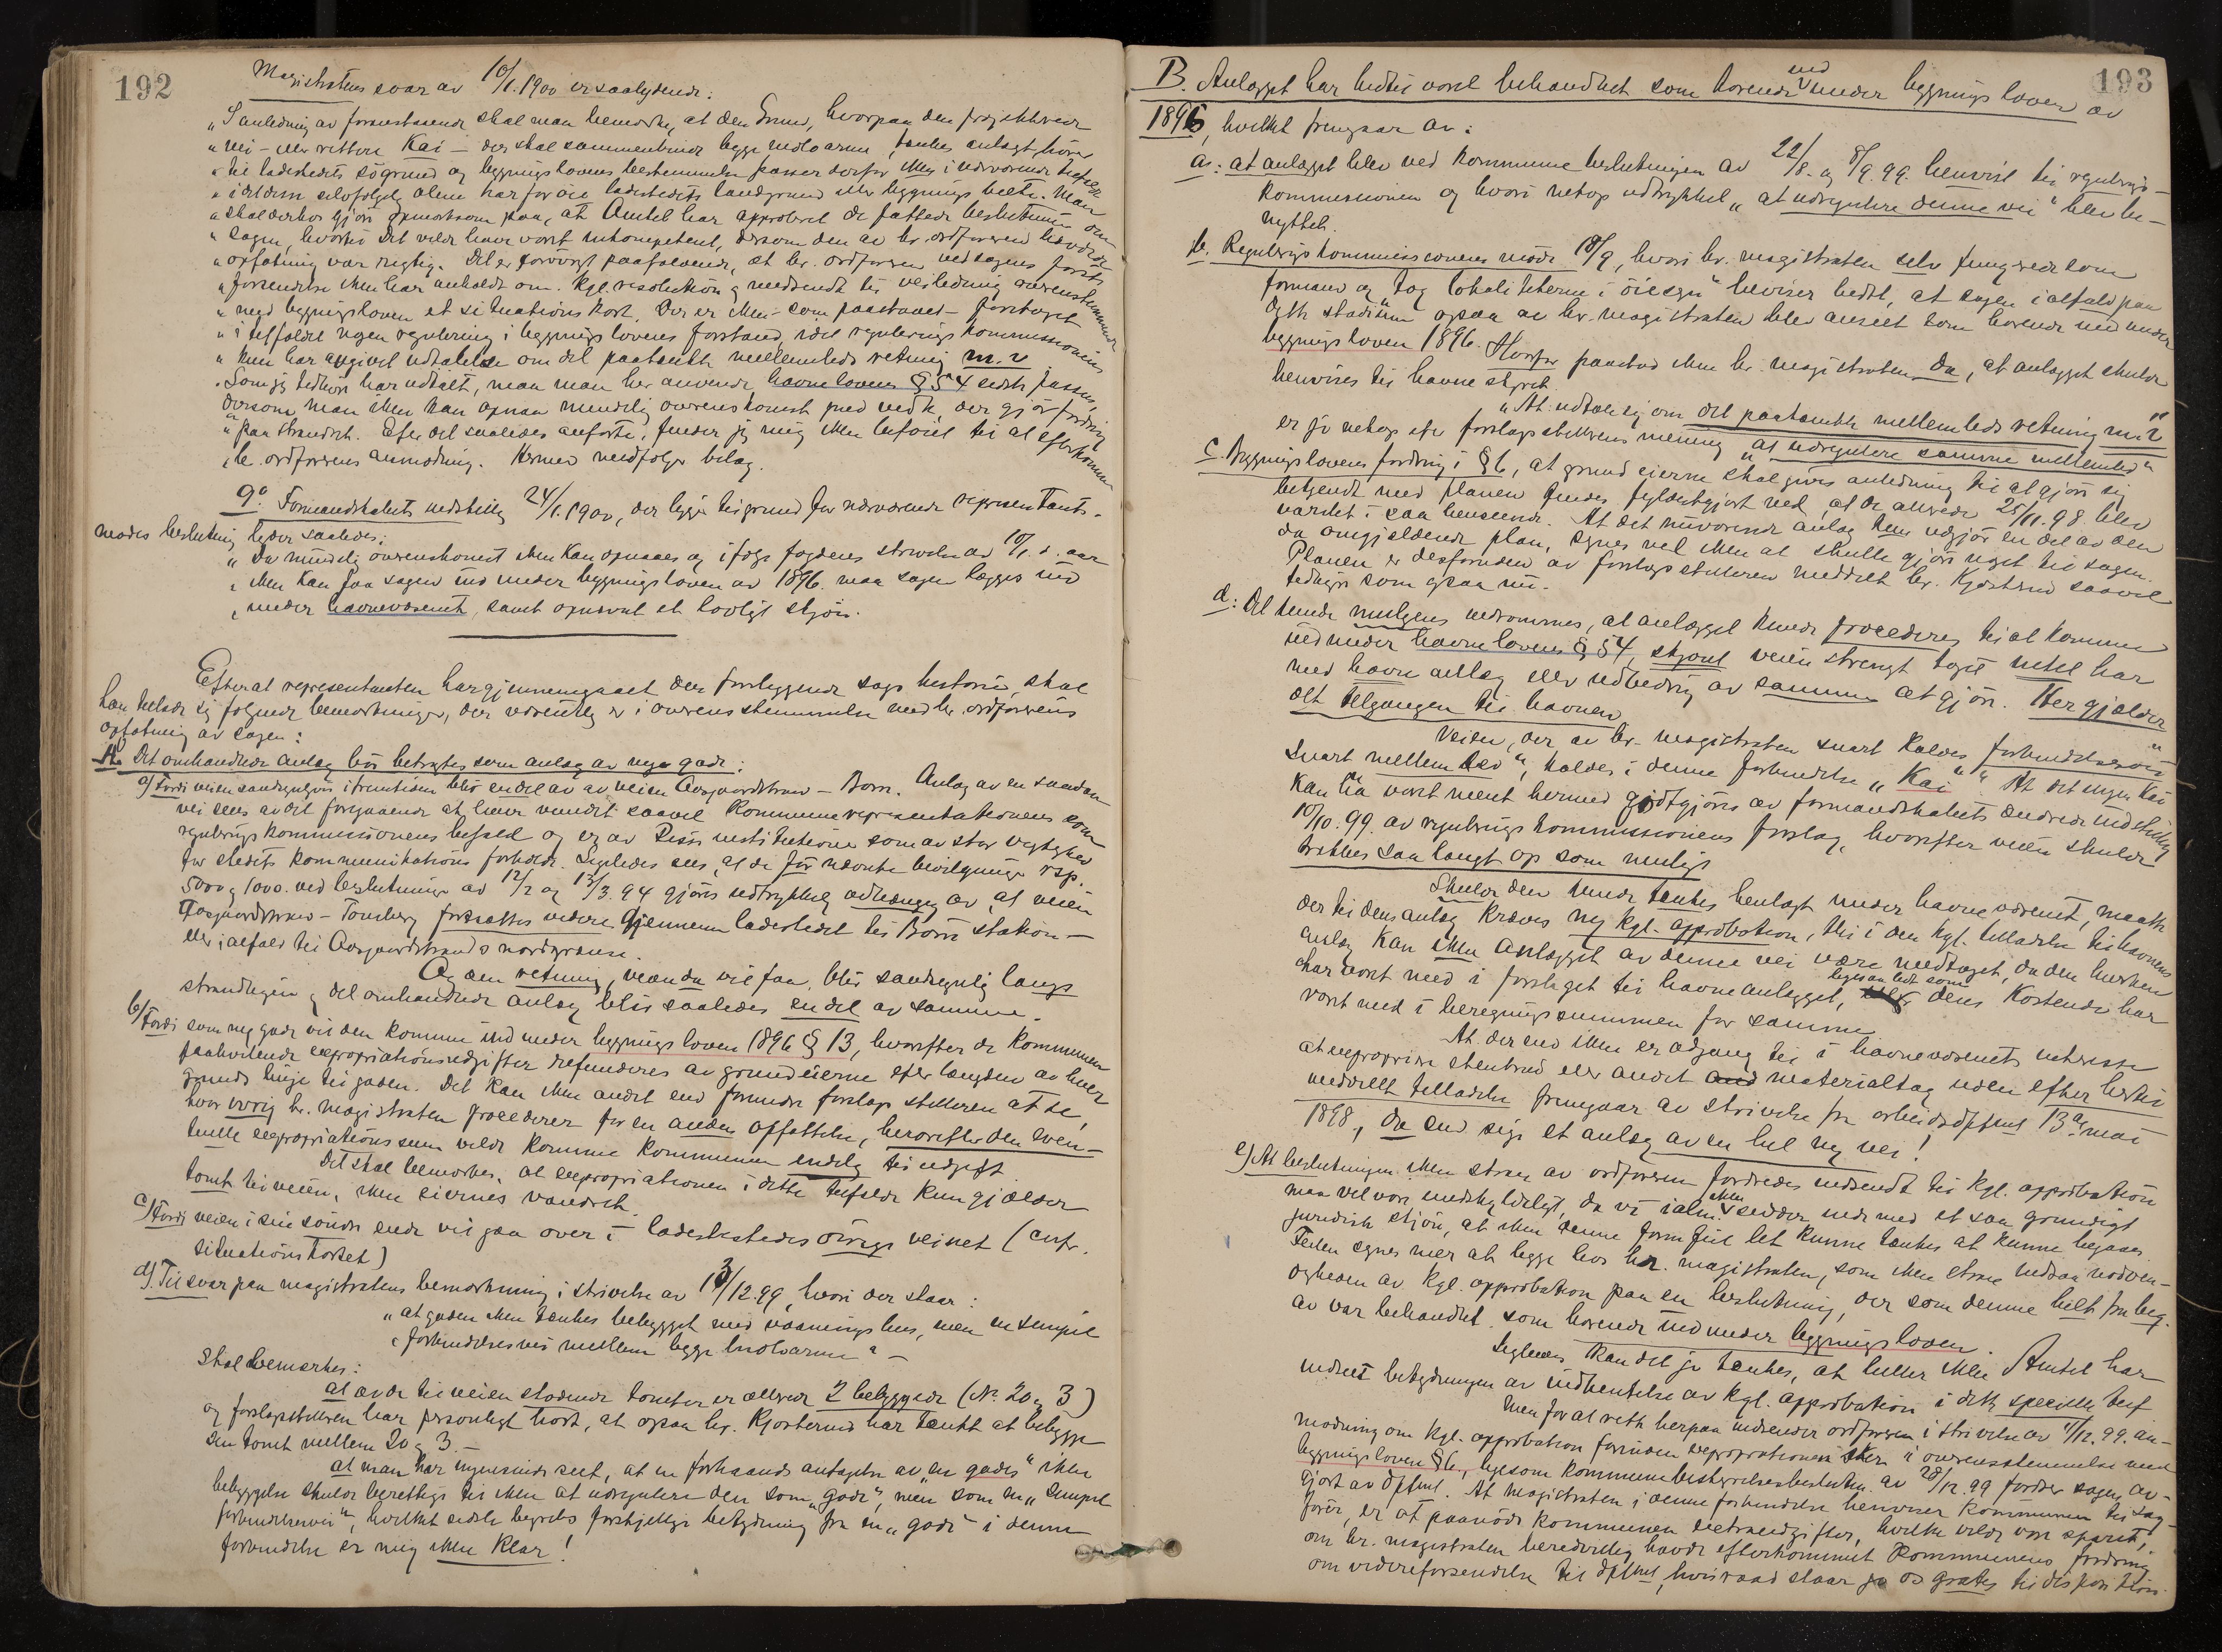 192
Magistratens svar av 10/1.1900 er saalydende:
"I anledning av foranstaaende skal man bemærke, at den Grund, hvorpaa den projekterede
"vei – eller rettere Kai – der skal sammenbinde begge moloarme, tænkes anlagt hører
"til ladestedets søgrund og bygningslovens bestemmelser passer derfor ikke i nærværende tilfælde
"idet denne selvfølgelig alene har for øie ladestedets landgrund eller bygnings belte. Man
"skal derhos gjøre opmærksom paa, at Amtet har approberet de fattede beslutninger om
"sagen, hvortil det vilde have været inkompetent, dersom den av hr. ordføreren hævdede
"opfatning var rigtig. Det er forøvrigt paafaldende, at hr. ordføreren ved sagens første
"forsendelse ikke har anholdt om kgl. resolution og medsendt til veiledning overensstemmende
"med bygningsloven et situationskort. Der er ikke – som paastaaet – foretaget
"i tilfældet nogen regulering i bygningslovens forstand, idet reguleringskommissionen
"kun har avgivet udtalelse om det paatænkte mellemleds retning m. v.
"Som jeg tidligere har udtalt, maa man her anvende havnelovens § 54 sidste passus,
"dersom man ikke kan opnaa mindelig overenskomst med vedk. der gjør fordring
"paa strandret. Efter det saaledes anførte, finder jeg mig ikke beføiet til at efterkomme
"hr. ordførerens anmodning. Hermed medfølger bilag.
9o. Formandskabets indstilling 24/1.1900, der ligger til grund for nærværende representant-
mødes beslutning lyder saaledes:
"Da mindelig overenskomst ikke kan opnaaes og ifølge fogdens skrivelse av 10/1. d. aar
"ikke kan faa sagen ind under bygningsloven av 1896 maa sagen lægges ind
"under havnevæsenet, samt opnævnt et lovligt skjøn.
Efterat representanten har gjennemgaaet den foreliggende sags historie, skal
han tillade sig følgende bemærkninger, der væsentlig er i overensstemmelse med hr. ordførerens
opfatning av sagen:
A. Det omhandlede anlæg bør betragtes som anlæg av nye gade:
a) Fordi veien sandsynligvis i fremtiden blir en del av veien Aasgaardstrand – Borre. Anlæg av en saadan
vei sees av det foregaaende at have vundet saavel kommunerepresentationens som
reguleringskommissionens bifald og er av disse institutioner som av stor vigtighed
for stedets kommunikations forholde. Ligeledes sees, at de før nævnte bevilgninger resp.
5000 og 1000 ved beslutninger av 12/2 og 13/3.94 gjøres udtrykkelig avhængig av, at veien
Aasgaardstrand – Tønsberg fortsættes videre gjennem ladestedet til Borre station –
eller ialfald til Aasgaardstrands nordgrænse.
Og den retning, veien da vil faa, blir sandsynlig langs
strandlinjen og det omhandlede anlæg blir saaledes en del av samme.
b) Fordi som ny gade vil den komme ind under bygningsloven 1896 § 13, hvorefter de kommunen
paahvilende expropriationsudgifter refunderes av grundeierne efter længden av hver
grunds linje til gaden. Det kan ikke andet end forundre forslagsstilleren at se,
hvor ivrig hr. magistraten procederer for en anden opfattelse, hvorefter den even-
tuelle expropriationssum vilde komme kommunen endelig til udgift.
Det skal bemærkes, at expropriationen i dette tilfælde kun gjælder
tomt til veien, ikke eiernes vandret.
c) Fordi veien i sin søndre ende vil gaa over i ladestedets øvrige veinet (cnfr.
situationskartet)
d). Til svar paa magistratens bemærkning i skrivelse av 13/12.99, hvori der staar:
"at gaden ikke tænkes bebygget med vaaningshus, men en simpel
"forbindelsesvei mellem begge moloarme" –
skal bemærkes:
at av de til veien stødende tomter er allerede 2 bebyggede (Nr. 20 og 3)
og forslagsstilleren har personligt hørt, at ogsaa hr. Kjøsterud har tænkt at bebygge
sin tomt mellem 20 og 3. –
at man har ingensinde seet, at en forhaands antagelse av "en gades" ikke
bebyggelse skulde berettige til ikke at udregulere den som "gade", men som en "simpel
forbindelsesvei", hvilket sidste begrebs forskjellige betydning fra en "gade" i denne
forbindelse er mig ikke klar!
193
B. Anlægget har hidtil været behandlet som hørende ind under bygnings loven av
1896, hvilket fremgaar av:
a: at anlægget blev ved kommune beslutningen av 22/8. og 8/9.99. henvist til regulerings-
kommissionen og hvori netop udtrykket "at udregulere denne vei" blev be-
nyttet.
b. Reguleringskommissionens møde 18/9, hvori hr. magistraten selv fungerede som
formand og "tog lokaliteterne i øiesyn" beviser bedst, at sagen ialfald paa
dette stadium ogsaa av hr. magistraten blev anseet som hørende ind under
bygningsloven 1896. Hvorfor paastod ikke hr. magistraten da, at anlægget skulde
henvises til havnestyret.
"At udtale sig om det paatænkte mellemleds retning m. v."
er jo netop efter forslagsstillerens mening "at udregulere samme mellemled"
c. Bygningslovens fordring i § 6, at grundeierne skal gives anledning til at gjøre sig
bekjendt med planen findes fyldestgjort ved, at de allerede 25/11.98 blev
varslet i saa henseende. At det nuværende anlæg kun udgjør en del av den
da omgjældende plan, synes vel ikke at skulle gjøre noget til sagen.
Planen er desforuden av forslagsstilleren meddelt hr. Kjøsterud saavel
tidligere som ogsaa nu.
d: Det kunde muligens indrømmes, at anlægget kunde procederes til at komme
ind under havnelovens § 54, skjønt veien strengt taget intet har
med havneanlæg eller udbedring av samme at gjøre. Her gjælder
det tilgangen til havnen.
Veien, der av hr. magistraten snart kaldes "forbindelsesvei"
snart "mellemled", kaldes i denne forbindelse "Kai". At det ingen Kai
kan ha været ment hermed godtgjøres av formandskabets ændrede indstilling
10/10.99. av reguleringskommissionens forslag, hvorefter veien skulde
trækkes saa langt op som muligt
Skulde den kunde tænkes henlagt under havnevæsenet, maatte
der til dens anlæg kræves ny kgl. approbation, thi i den kgl. tilladelse til havnens
anlæg kan ikke anlægget av denne vei være medtaget, da den hverken
har været med i forslaget til havneanlægget, ligesaa lidt som dens kostende har
været med i beregningssummen for samme
At der end ikke er adgang til i havnevæsenets interesse
at expropriere stenbrud eller andet materialtag uden efter hertil
meddelt tilladelse fremgaar av skrivelse fra arbeidsdeptmt 13de mai
1898, da end sige et anlæg av en hel ny vei!
e) At beslutningen ikke strax av ordføreren fordredes indsendt til kgl. approbation
maa vel være undskyldeligt, da vi ialm. ikke sidder inde med et saa grundigt
juridisk skjøn, at ikke denne formfeil let kunne tænkes at kunne begaaes.
Feilen synes mer at ligge hos hr. magistraten, som ikke strax indsaa nødven-
digheden av kgl. approbation paa en beslutning, der som denne helt fra beg.
av var behandlet som hørende ind under bygningsloven.
Ligeledes kan det jo tænkes, at heller ikke Amtet har
indseet betydningen av indhentelse av kgl. approbation i dette specielle tilf
Men for at rette herpaa indsender ordføreren i skrivelse av 4/12.99. an-
modning om kgl. approbation forinden expropriationen sker i overensstemmelse med
bygningsloven § 6, ligesom kommunebestyrelsesbeslutn. av 28/12.99 fordrer sagen av-
gjort av deptmt. At magistraten i denne forbindelse henviser kommunen til sag-
fører, er at paanøde kommunen extraudgifter, hvilke vilde være sparet,
om hr. magistraten beredvillig havde efterkommet kommunens fordring
om videreforsendelse til deptmt, hvis raad staar jo os gratis til disposition.